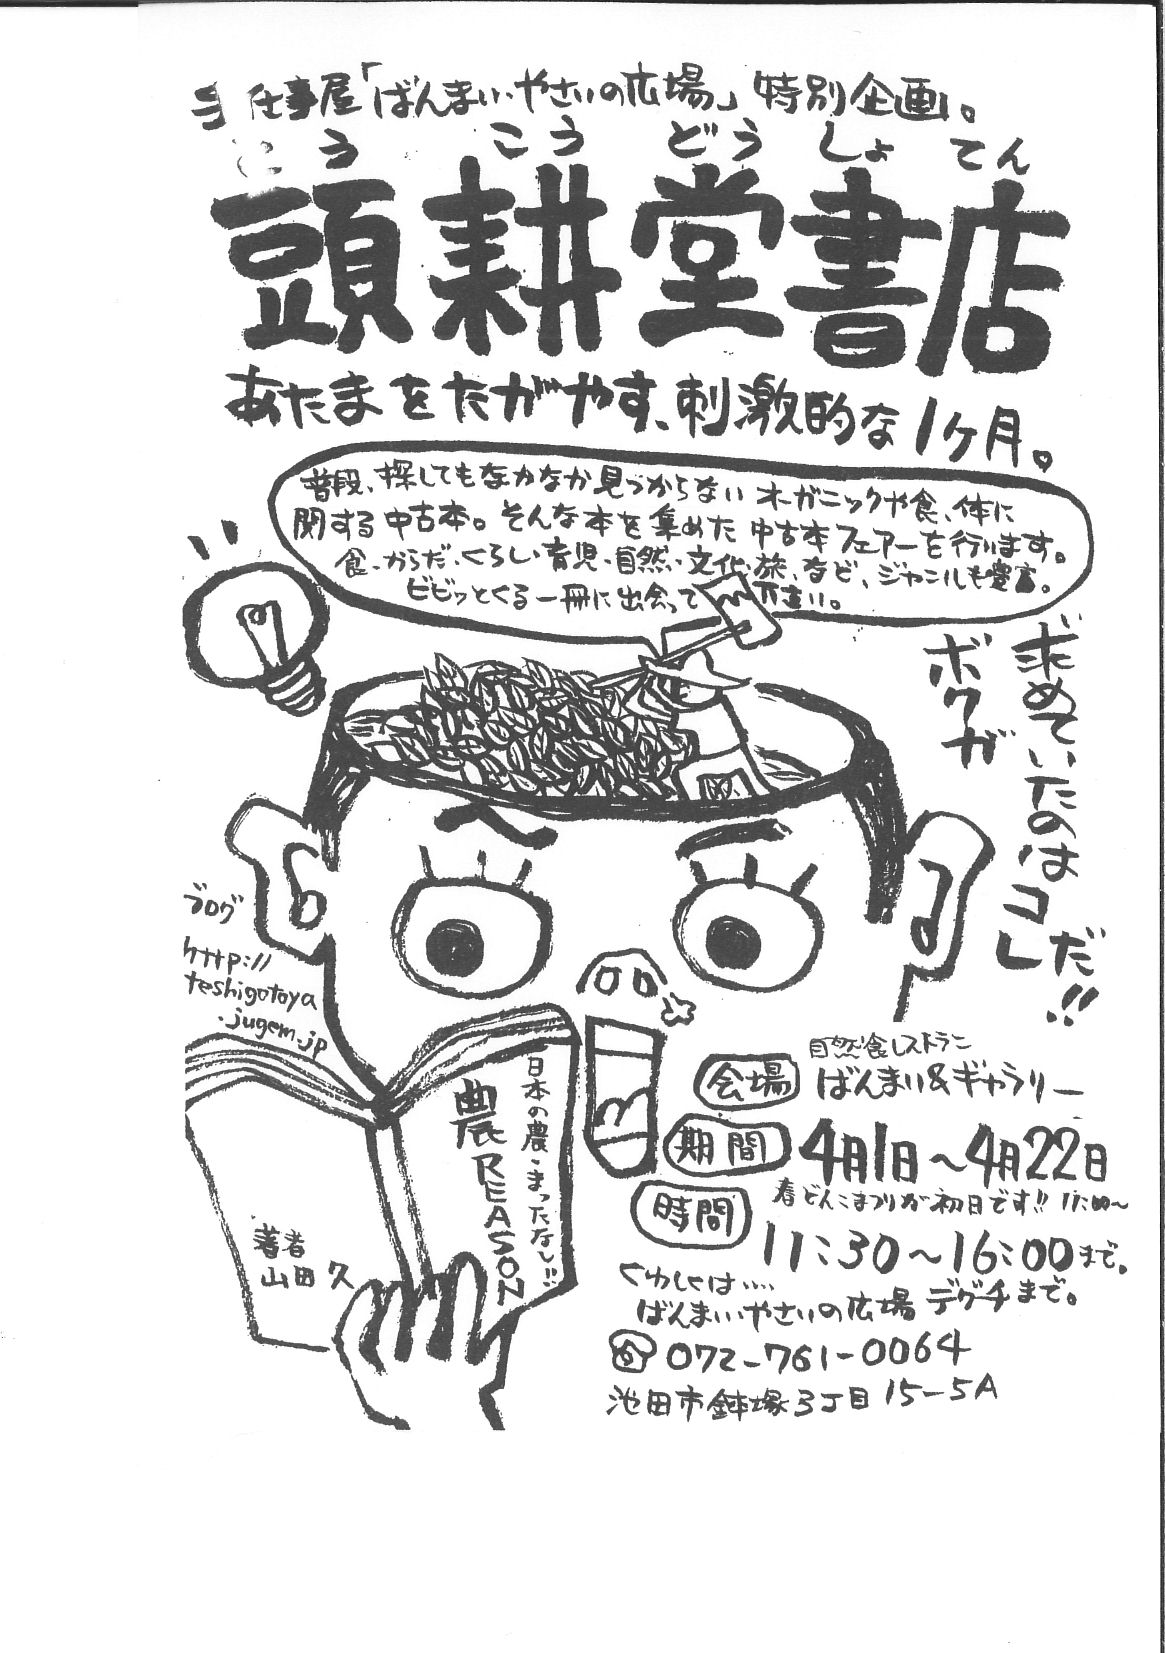 仕事屋「ばんまい・やさいの広場」特別企画。
とう こう どう しょ てん
頭耕堂書店
あたまをたがやす、刺激的な1ヶ月。
普段、探してもなかなか見つからないオーガニックや食、体に
関する中古本。そんな本を集めた中古本フェアーを行います。
食・からだ・くらし・育児・自然・文化・旅、など、ジャンルも豊富。
ビビッとくる一冊に出会って下さい。
ボクガ
求めていたのは
コレ
だ!!
ブログ
http://
teshigotoya
.jugem.jp
日本の農・まったなし!!
農REASON
著者
山田久
自然食レストラン
会場 ばんまい&ギャラリー
期間 4月1日～4月22日
春どんこまつりが初日です!! 11:00～
時間 11:30～16:00まで。
くわしくは‥‥
ばんまい・やさいの広場 デグチまで。
072-761-0064
池田市鉢塚3丁目15-5A